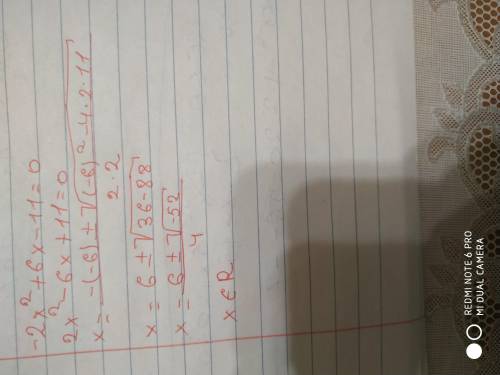 -2x²+6x-11=0
2x²-6x+11=0
x = -(-6)+√(-6)²-4·2·11
2·2
x = 6±√36-88
x = 6±√-52
4
x∈R
REDMI NOTE 6 PRO
MI DUAL CAMERA